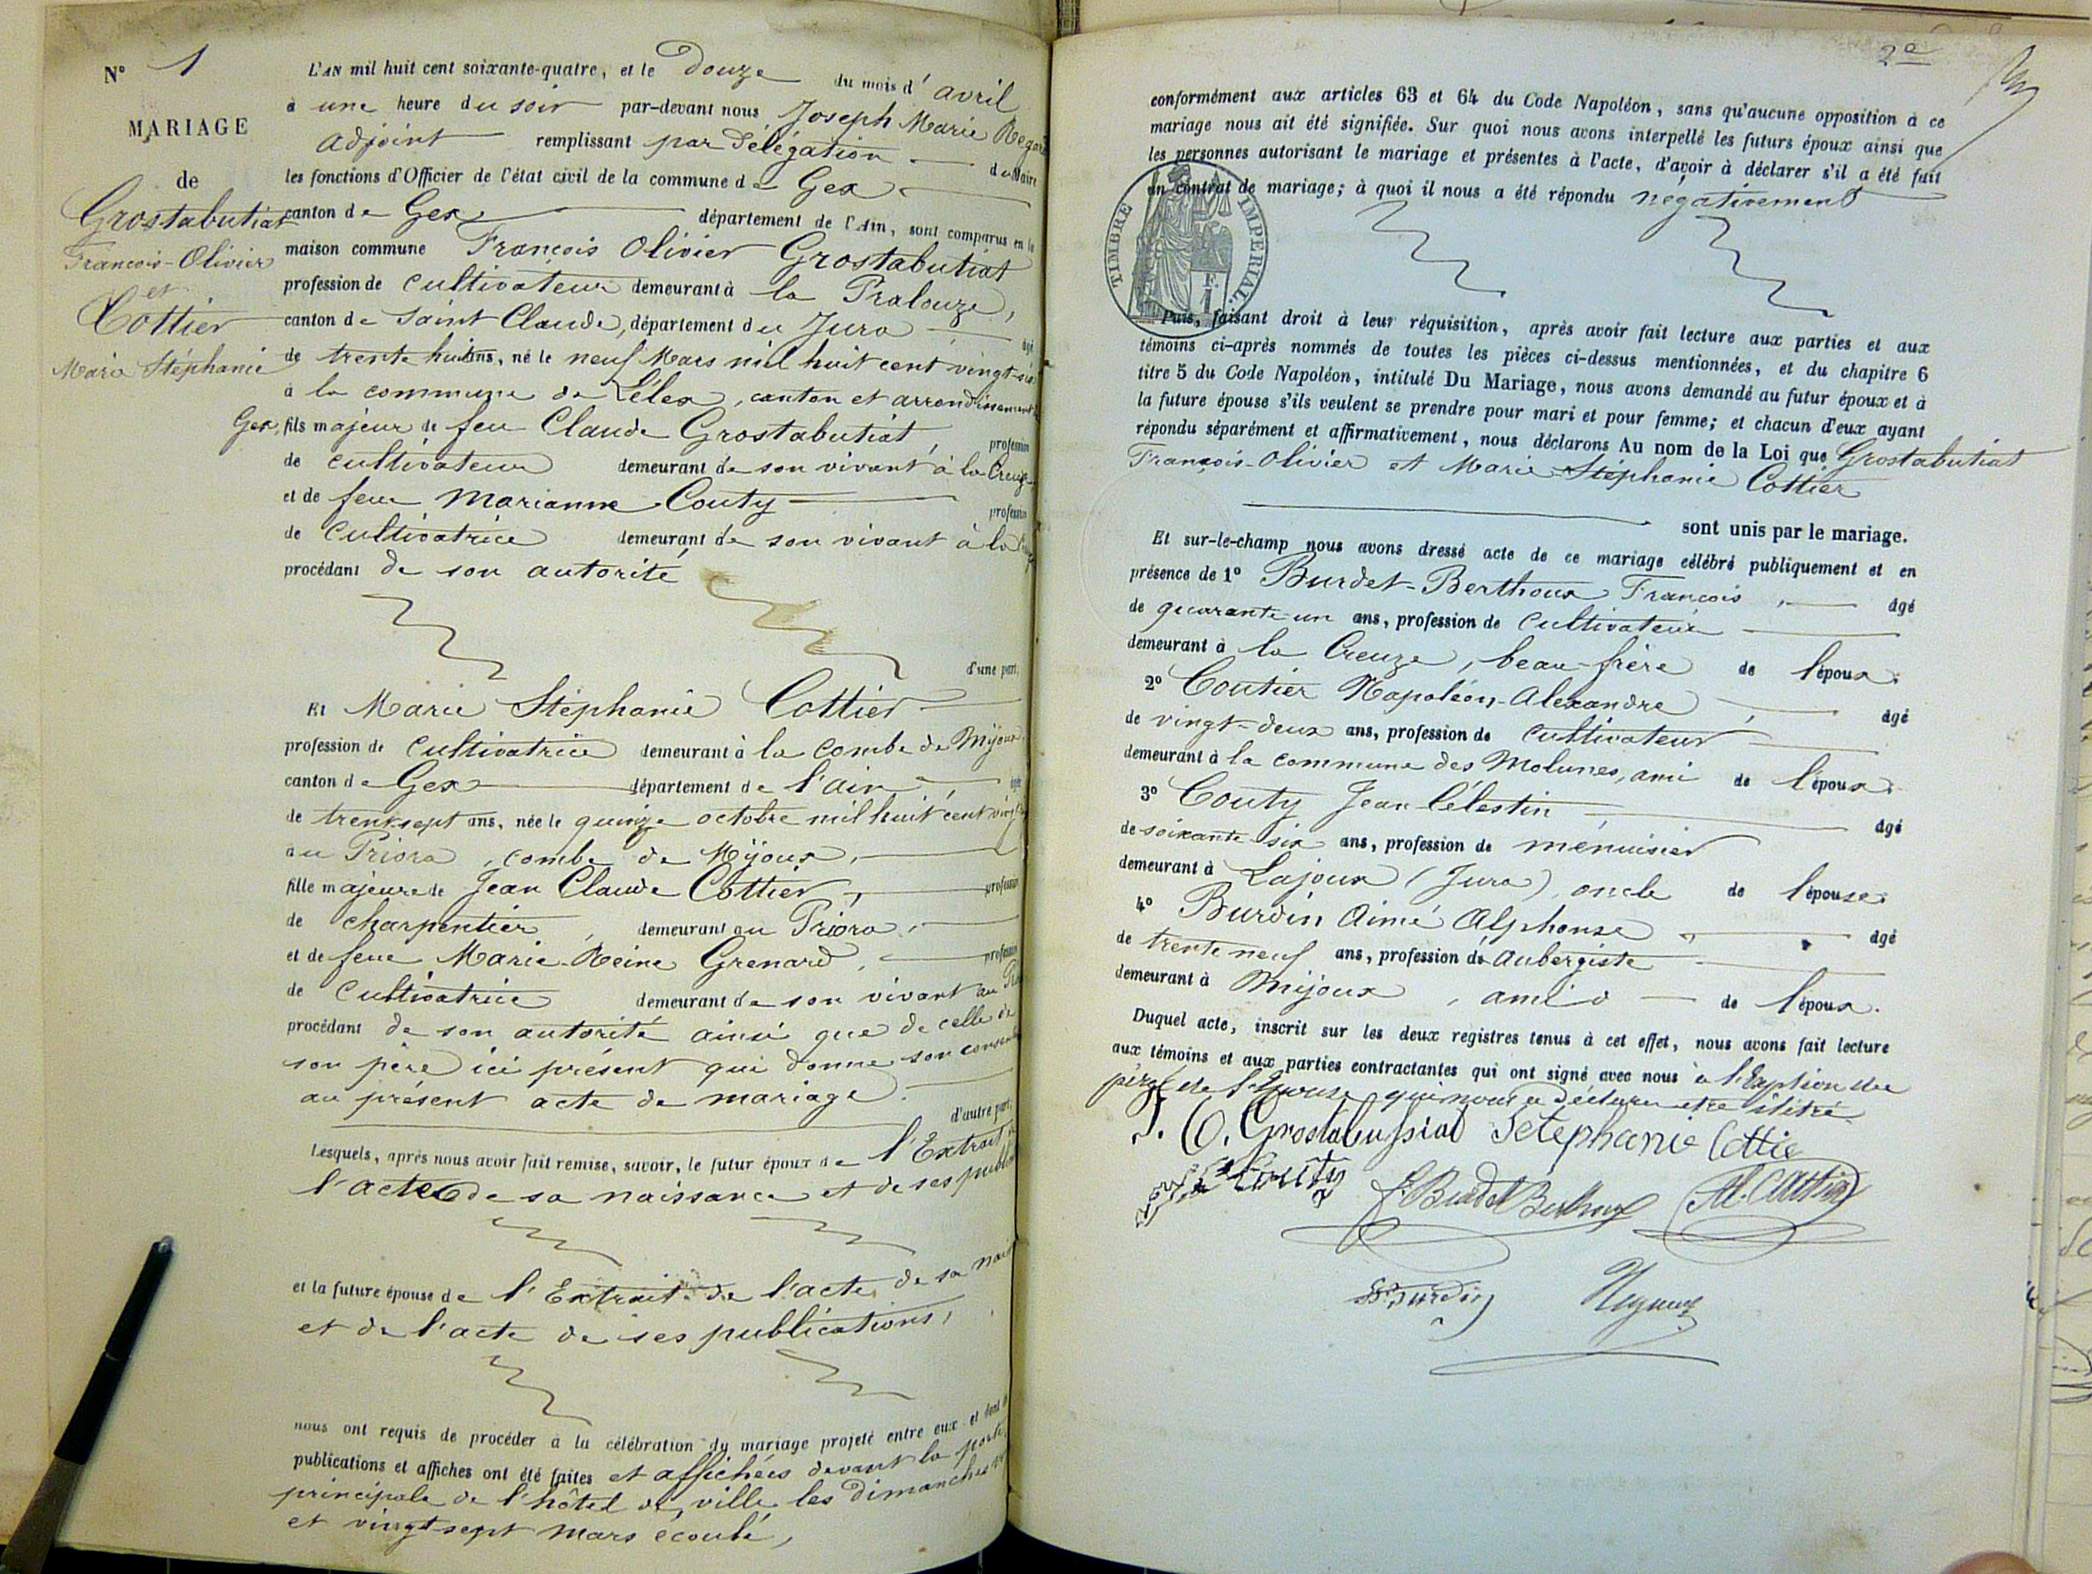 N° 1
MARIAGE
de
Grostabutiat
François-Olivier
et
Cottier
Marie Stéphanie
L'AN mil huit cent soixante-quatre, et le Douze du mois d'avril
à une heure du soir par-devant nous Joseph Marie
Adjoint remplissant par Délégation du Maire
les fonctions d'Officier de l'état civil de la commune de Gex
canton de Gex département de l'Ain, sont comparus en la
maison commune François Olivier Grostabutiat
profession de cultivateur demeurant à la Pralouze,
canton de Saint Claude, département du Jura âgé
de trente huit ans, né le neuf Mars mil huit cent vingt-six
à la commune de Lélex, canton et arrondissement de
Gex, fils majeur de feu Claude Grostabutiat, profession
de cultivateur demeurant de son vivant à la Creuze
et de feue Marianne Couty profession
de cultivatrice demeurant de son vivant à la
procédant de son autorité
d'une part,
Et Marie Stéphanie Cottier
profession de cultivatrice demeurant à la combe de Mijoux
canton de Gex département de l'ain âgée
de trente sept ans, née le quinze octobre mil huit cent
au Priora, combe de Mijoux,
fille majeure de Jean Claude Cottier, profession
de charpentier, demeurant au Priora,
et de feue Marie-Reine Grenard, profession
de cultivatrice demeurant de son vivant au
procédant de son autorité ainsi que de celle de
son père ici présent qui donne son
au présent acte de mariage.
d'autre part;
Lesquels, après nous avoir fait remise, savoir, le futur époux de l'Extrait de
l'acte de sa naissance et de ses
et la future épouse de l'Extrait de l'acte de sa
et de l'acte de ses publications,
nous ont requis de procéder à la célébration du mariage projeté entre eux et dont les
publications et affiches ont été faites et affichées devant la porte
principale de l'hôtel de ville les dimanches
et vingt-sept mars écoulé,
2e
conformément aux articles 63 et 64 du Code Napoléon, sans qu'aucune opposition à ce
mariage nous ait été signifiée. Sur quoi nous avons interpellé les futurs époux ainsi que
les personnes autorisant le mariage et présentes à l'acte, d'avoir à déclarer s'il a été fait
un contrat de mariage; à quoi il nous a été répondu négativement
TIMBRE IMPERIAL.
Puis, faisant droit à leur réquisition, après avoir fait lecture aux parties et aux
témoins ci-après nommés de toutes les pièces ci-dessus mentionnées, et du chapitre 6
titre 5 du Code Napoléon, intitulé Du Mariage, nous avons demandé au futur époux et à
la future épouse s'ils veulent se prendre pour mari et pour femme; et chacun d'eux ayant
répondu séparément et affirmativement, nous déclarons Au nom de la Loi que Grostabutiat
François-Olivier et Marie Stéphanie Cottier
sont unis par le mariage.
Et sur-le-champ nous avons dressé acte de ce mariage célébré publiquement et en
présence de 1° Burdet-Berthoux François, âgé
de quarante-un ans, profession de Cultivateur
demeurant à la Creuze, beau-frère de l'époux.
2° Coutier Napoléon-Alexandre, âgé
de vingt-deux ans, profession de cultivateur
demeurant à la commune des Molunes, ami de l'époux.
3° Couty Jean Célestin âgé
de soixante six ans, profession de menuisier
demeurant à Lajoux (Jura) oncle de l'épouse.
4° Burdin Aimé Alphonse âgé
de trente neuf ans, profession de Aubergiste
demeurant à Mijoux, ami de l'époux.
Duquel acte, inscrit sur les deux registres tenus à cet effet, nous avons fait lecture
aux témoins et aux parties contractantes qui ont signé avec nous à l'Exption du
père de l'Epouse qui nous a déclaré etre ilitré
f. O. Grostabussiat Steephanie Cottie
Couty f. Burdet Berthoux Al. Cattin
Burdin